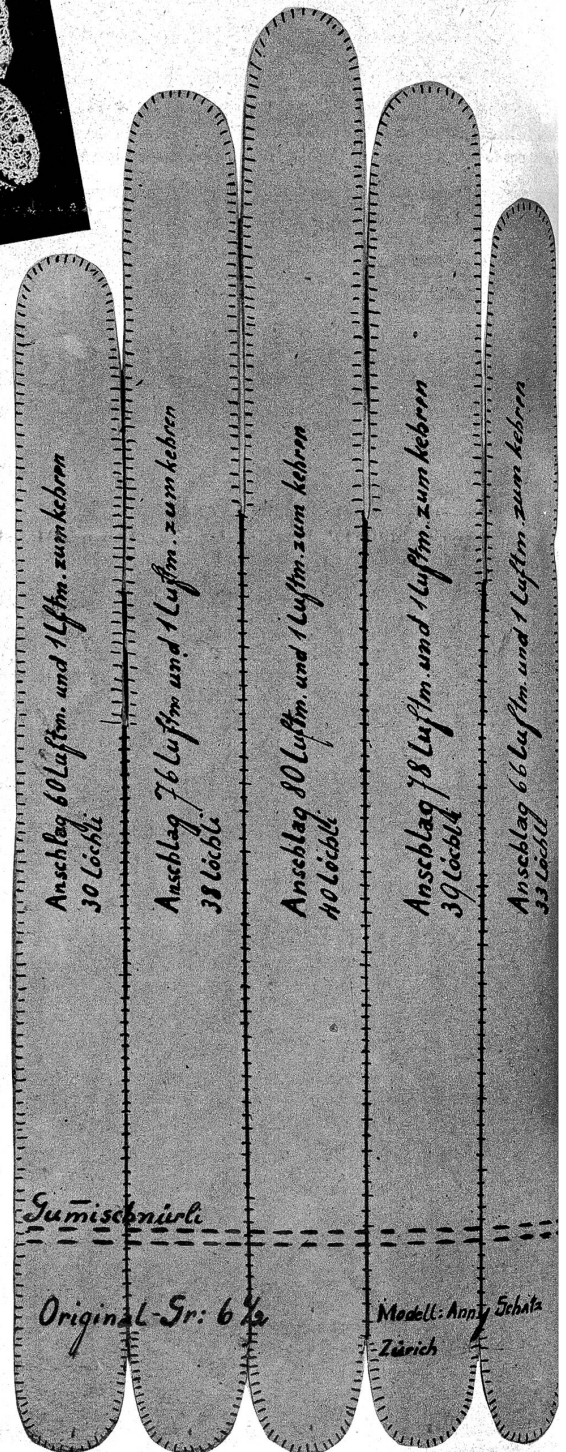 Anschlag 60 Luftm. und 1 Lftm. zum kehren
30 Löchli
Anschlag 76 Luftm und 1 Luftm. zum kehren
38 Löchli
Anschlag 80 Luftm. und 1 Luftm. zum kehren
40 Löchli
Anschlag 78 Luftm. und 1 Luftm. zum kehren
39 Löchli
Anschlag 66 Luftm. und 1 Luftm. zum kehren
33 Löchli
Gum̅ischnürli
Original-Gr: 6 ½
Modell: Anny Schätz
Zürich